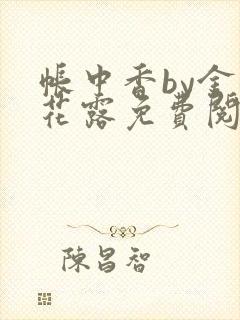 帳中香by金
花露免費閱
陳昌智